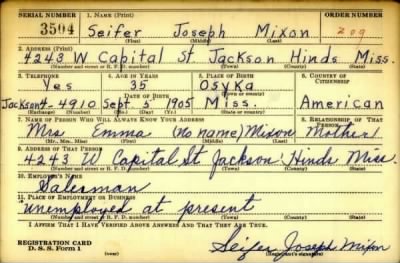 SERIAL NUMBER 1. NAME (Print) ORDER NUMBER
3504 Seifer Joseph Mixon 209
(First) (Middle) (Last)
2. ADDRESS (Print)
4243 W Capital St. Jackson Hinds Miss.
(Number and street or R. F. D. number) (Town) (County) (State)
3. TELEPHONE 4. AGE IN YEARS 5. PLACE OF BIRTH 6. COUNTRY OF CITIZENSHIP
Yes 35 Osyka
(Town or county)
Jackson 4-4910 Sept. 5 1905 Miss. American
(Exchange) (Number) (Mo.) (Day) (Yr.) (State or country)
7. NAME OF PERSON WHO WILL ALWAYS KNOW YOUR ADDRESS 8. RELATIONSHIP OF THAT PERSON
Mrs Emma (No name) Mixon Mother
(Mr., Mrs., Miss) (First) (Middle) (Last)
9. ADDRESS OF THAT PERSON
4243 W Capital St Jackson Hinds Miss
(Number and street or R. F. D. number) (Town) (County) (State)
10. EMPLOYER'S NAME
Salesman
11. PLACE OF EMPLOYMENT OR BUSINESS
Unemployed at present
(Number and street or R. F. D. number) (Town) (County) (State)
I AFFIRM THAT I HAVE VERIFIED ABOVE ANSWERS AND THAT THEY ARE TRUE.
REGISTRATION CARD
D. S. S. Form 1
Seifer Joseph Mixon
(Registrant's signature)